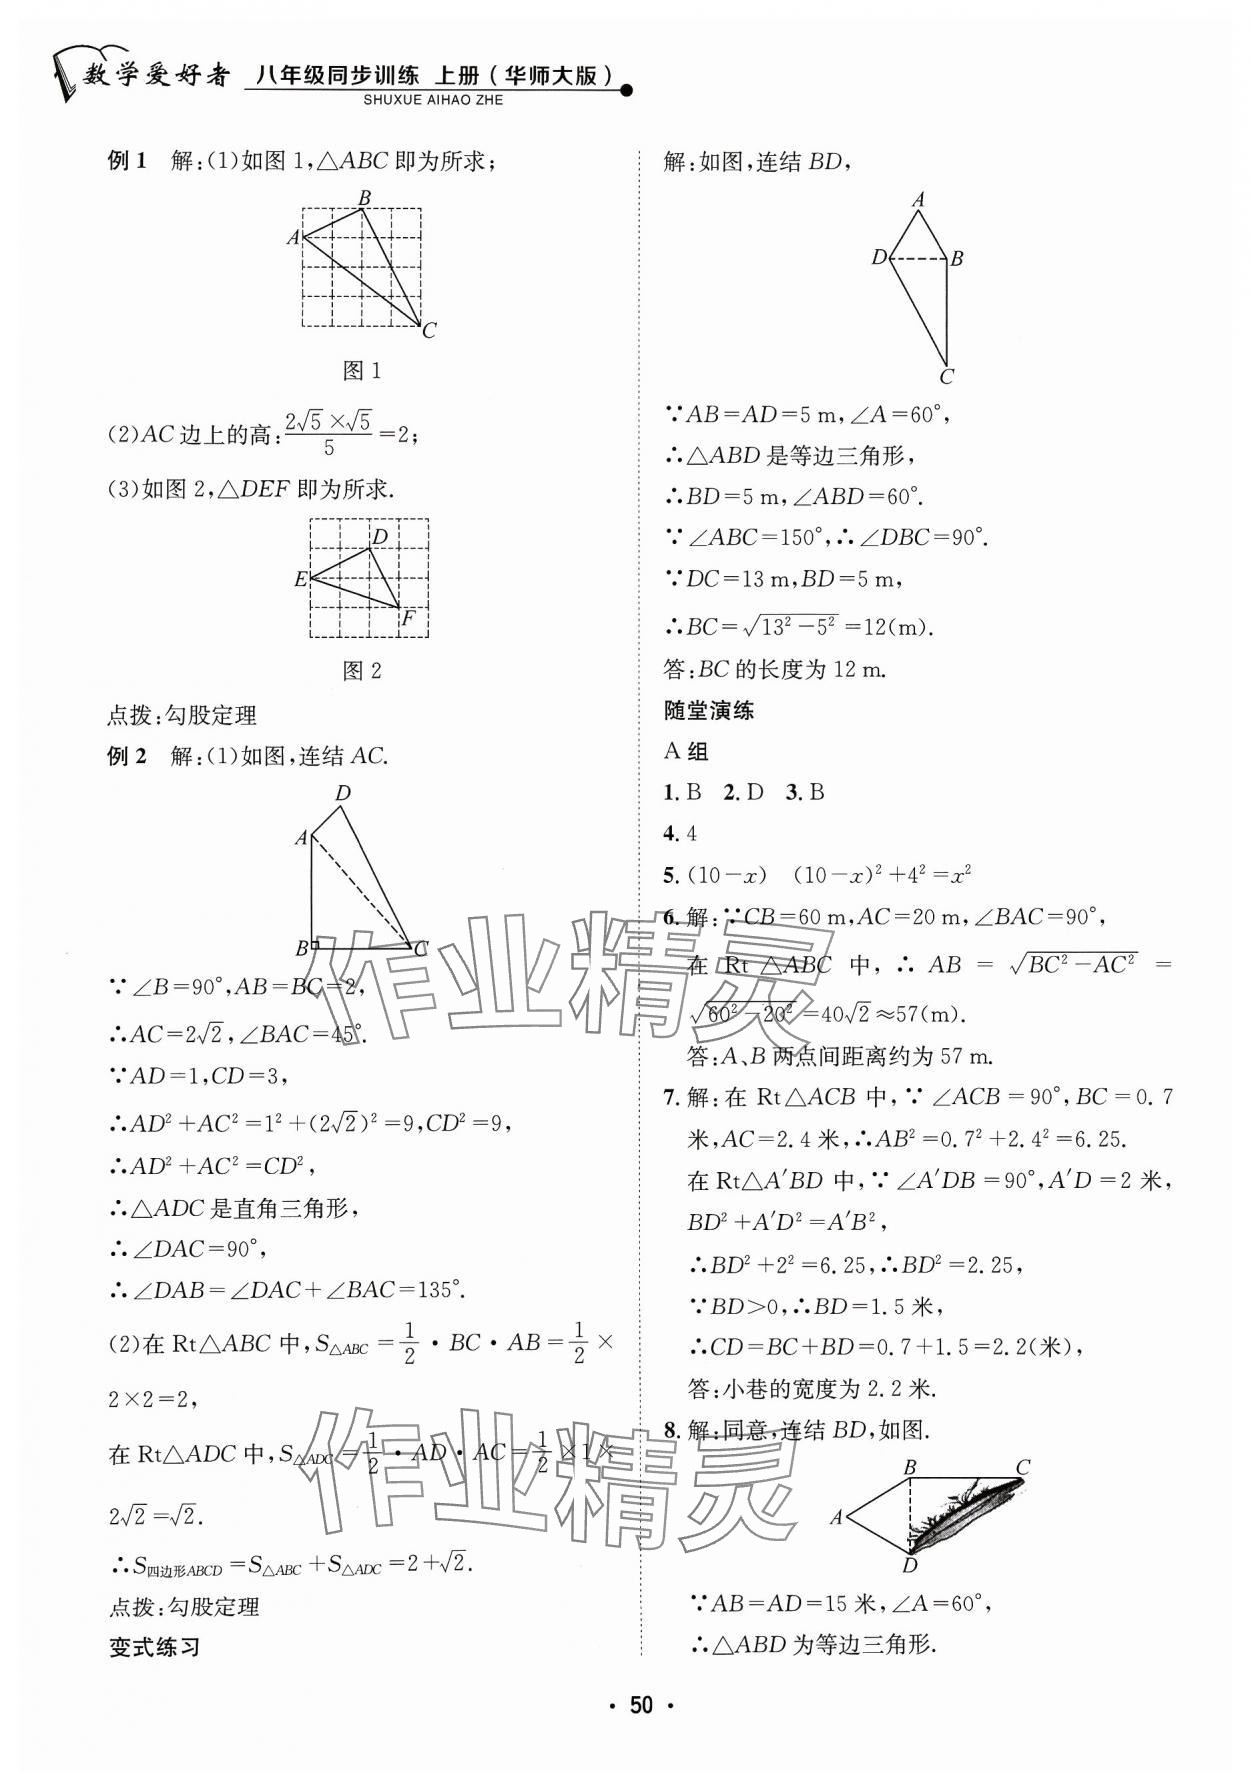 数学爱好者 八年级同步训练 上册（华师大版）
SHUXUE AIHAO ZHE
例 1 解:(1)如图 1,△ABC 即为所求;
B
A
C
图 1
(2)AC 边上的高:$\frac{2\sqrt{5}×\sqrt{5}}{5}$=2;
(3)如图 2,△DEF 即为所求.
D
E
F
图 2
点拨:勾股定理
例 2 解:(1)如图,连结 AC.
D
A
B
C
∵∠B=90°,AB=BC=2,
∴AC=2√2,∠BAC=45°.
∵AD=1,CD=3,
∴AD²+AC²=1²+(2√2)²=9,CD²=9,
∴AD²+AC²=CD²,
∴△ADC 是直角三角形,
∴∠DAC=90°,
∴∠DAB=∠DAC+∠BAC=135°.
(2)在 Rt△ABC 中,S△ABC=$\frac{1}{2}$·BC·AB=$\frac{1}{2}$×
2×2=2,
在 Rt△ADC 中,S△ADC=$\frac{1}{2}$·AD·AC=$\frac{1}{2}$×1×
2√2=√2.
∴S四边形ABCD=S△ABC+S△ADC=2+√2.
点拨:勾股定理
变式练习
解:如图,连结 BD,
A
D
B
C
∵AB=AD=5 m,∠A=60°,
∴△ABD 是等边三角形,
∴BD=5 m,∠ABD=60°.
∵∠ABC=150°,∴∠DBC=90°.
∵DC=13 m,BD=5 m,
∴BC=$\sqrt{13²-5²}$=12(m).
答:BC 的长度为 12 m.
随堂演练
A 组
1. B 2. D 3. B
4. 4
5. (10-x) (10-x)²+4²=x²
6. 解:∵CB=60 m,AC=20 m,∠BAC=90°,
在 Rt △ABC 中,∴ AB = $\sqrt{BC²-AC²}$ =
$\sqrt{60²-20²}$=40√2≈57(m).
答:A、B 两点间距离约为 57 m.
7. 解:在 Rt△ACB 中,∵∠ACB=90°,BC=0.7
米,AC=2.4 米,∴AB²=0.7²+2.4²=6.25.
在 Rt△A′BD 中,∵∠A′DB=90°,A′D=2 米,
BD²+A′D²=A′B²,
∴BD²+2²=6.25,∴BD²=2.25,
∵BD>0,∴BD=1.5 米,
∴CD=BC+BD=0.7+1.5=2.2(米),
答:小巷的宽度为 2.2 米.
8. 解:同意,连结 BD,如图.
B
C
A
D
∵AB=AD=15 米,∠A=60°,
∴△ABD 为等边三角形.
作业精灵
作业精灵
· 50 ·